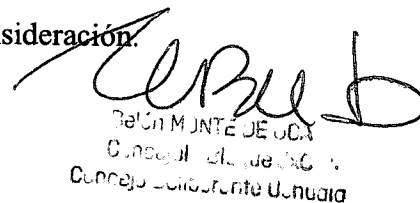 nsideración.
Belén MONTE DE OCA
Concejal
Concejo Deliberante Ushuaia